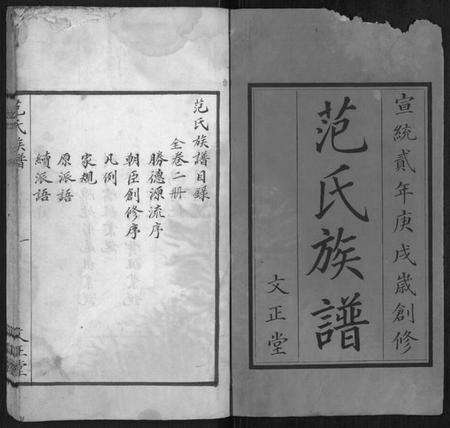 宣統貳年庚戌歲創修
范氏族譜
文正堂
范氏族譜目錄
全卷二册
勝德源流序
朝臣創修序
凡例
家規
原派語
續派語
范氏族譜
一
文正堂